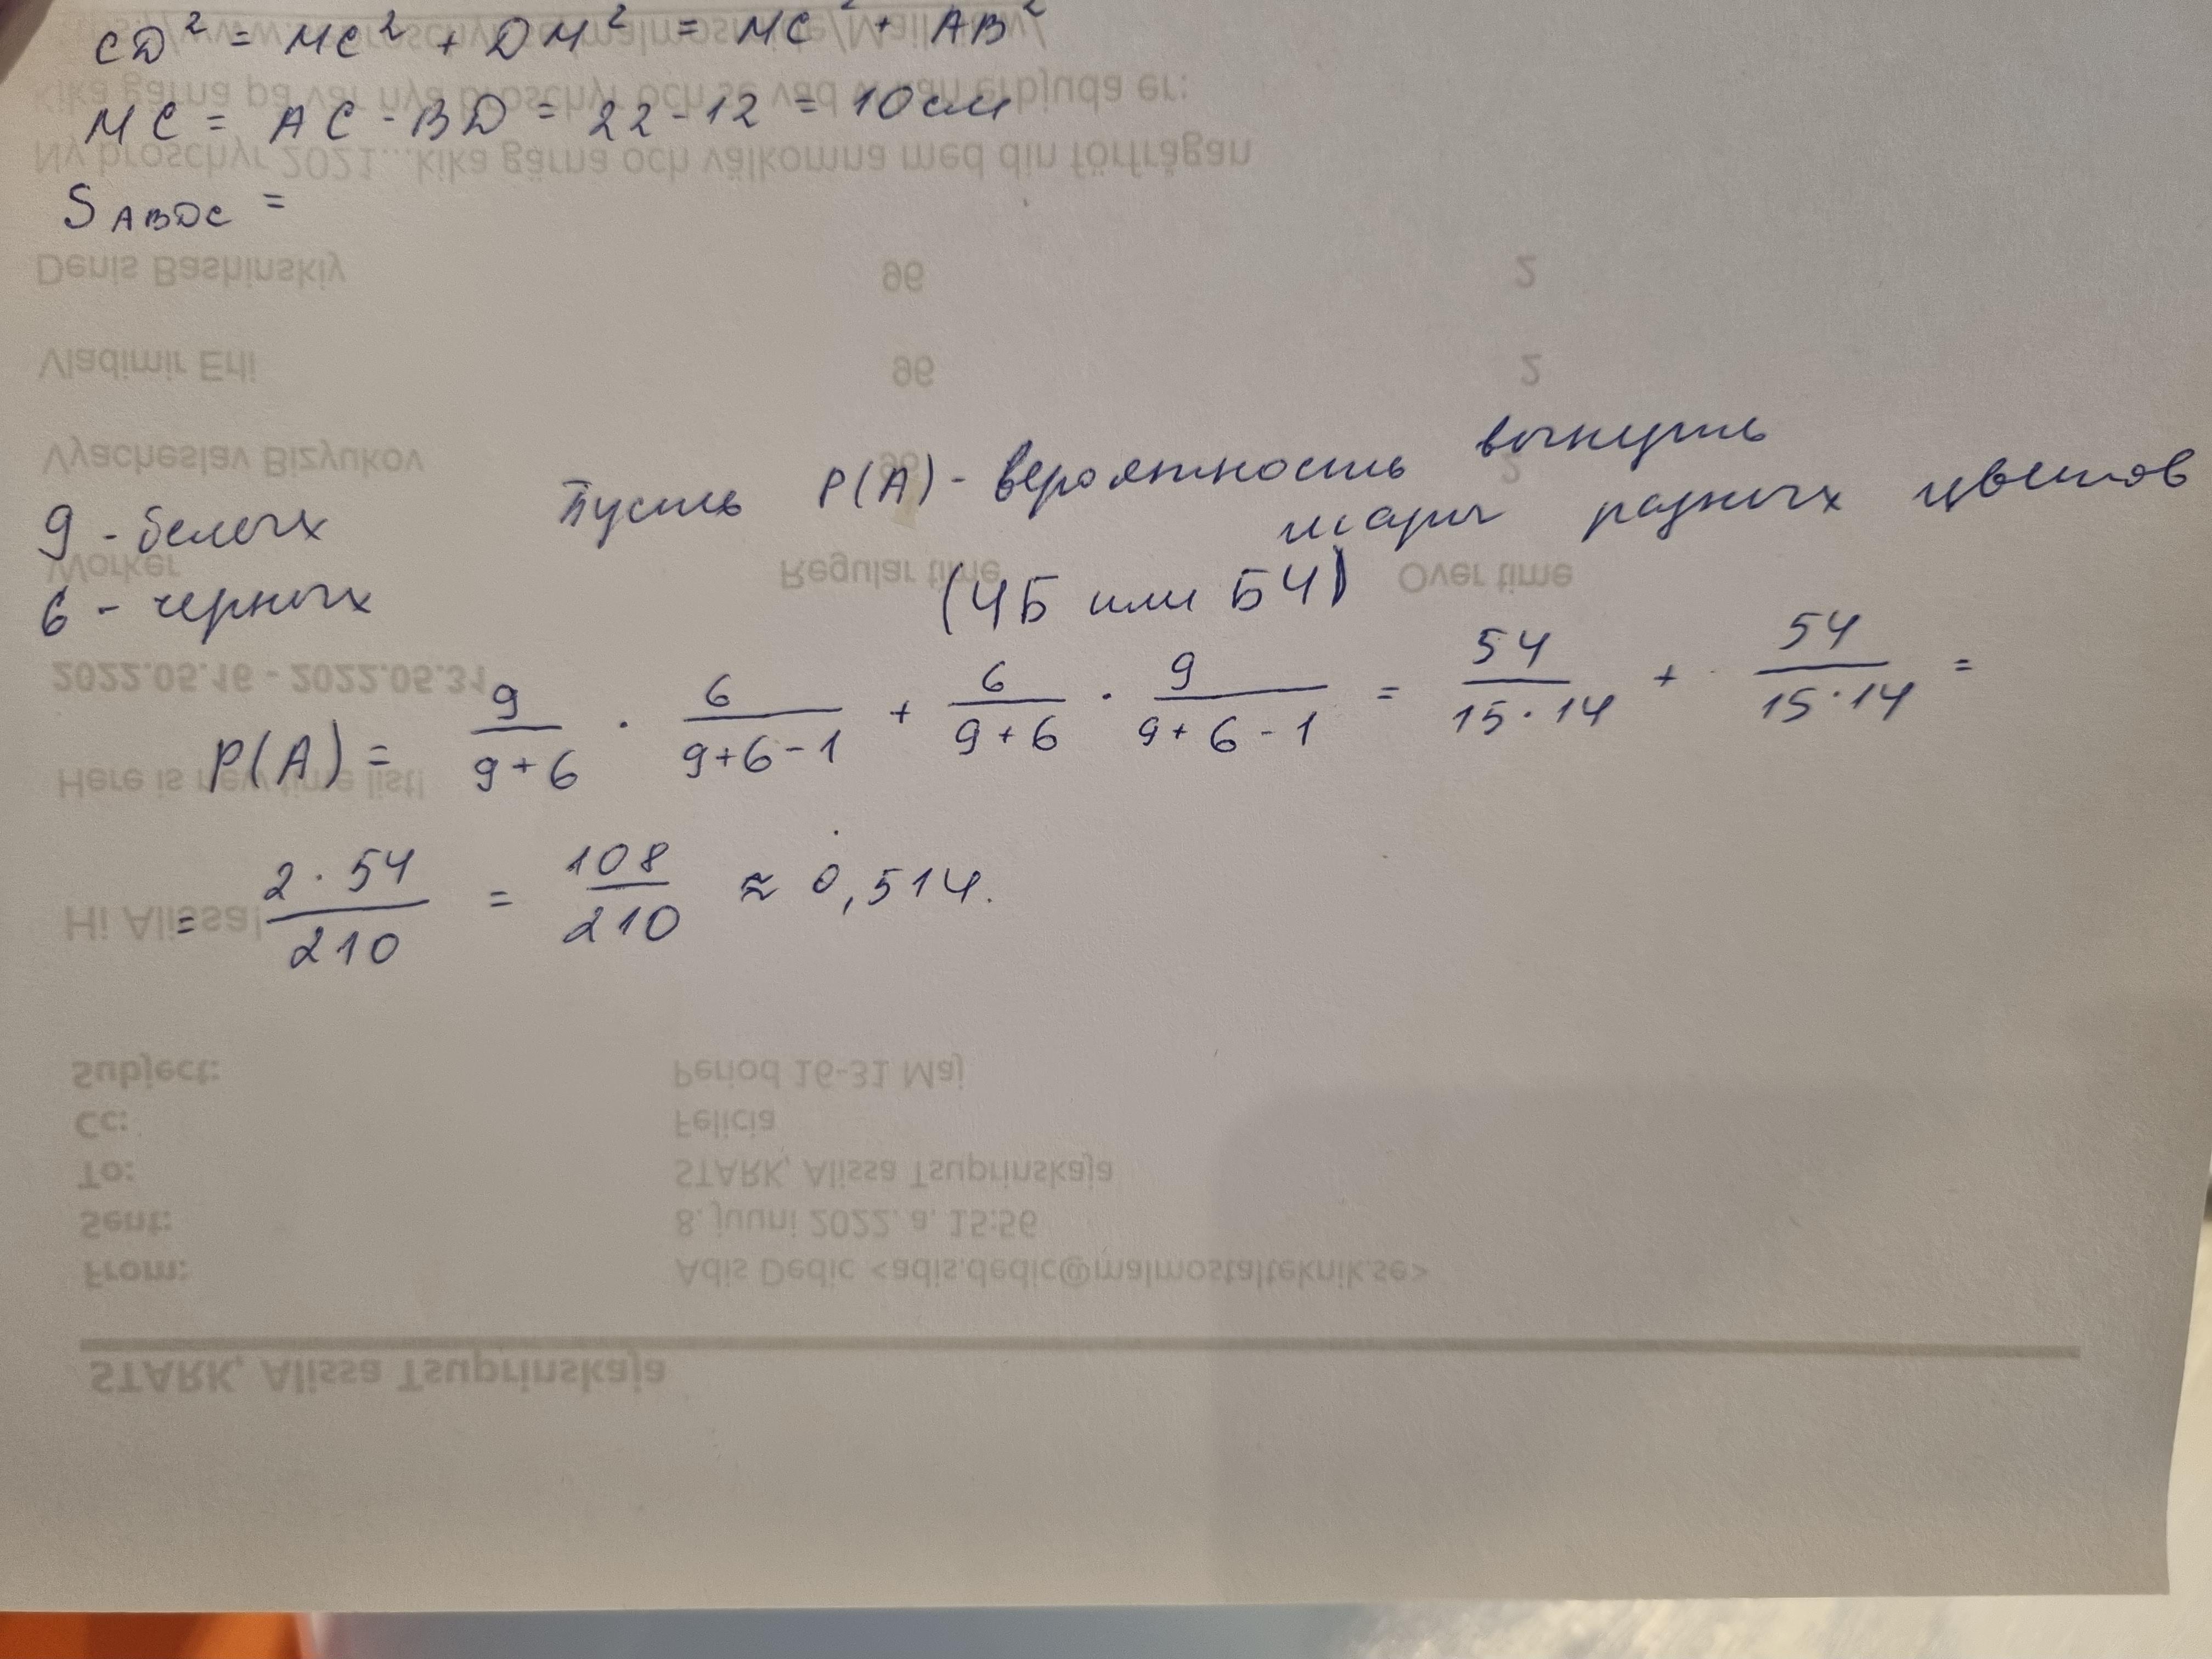 CD² = MC² + DM² = MC² + AB²
MC = AC - BD = 22 - 12 = 10 см
S ABDC =
9 - белых
6 - черных
Пусть P(A) - вероятность вынуть
шары разных цветов
(ЧБ или БЧ)
P(A) = 9/(9+6) · 6/(9+6-1) + 6/(9+6) · 9/(9+6-1) = 54/(15·14) + 54/(15·14) =
= (2·54)/210 = 108/210 ≈ 0,514.
kika gärna på vår nya broschyr och se vad vi kan erbjuda er:
Ny broschyr 2021...kika gärna och välkomna med din förfrågan
Denis Bashinskiy 96 2
Vladimir Erli 96 2
Vyacheslav Bizyukov 96 2
Worker Regular time Over time
2022.05.16 - 2022.05.31
Here is new time list!
Hi Alissa!
Subject: Period 16-31 Maj
Cc: Felicia
To: STARK, Alissa Tsuprinskaja
Sent: 8. juuni 2022. a. 15:56
From: Adis Dedic <adis.dedic@malmostalteknik.se>
STARK, Alissa Tsuprinskaja